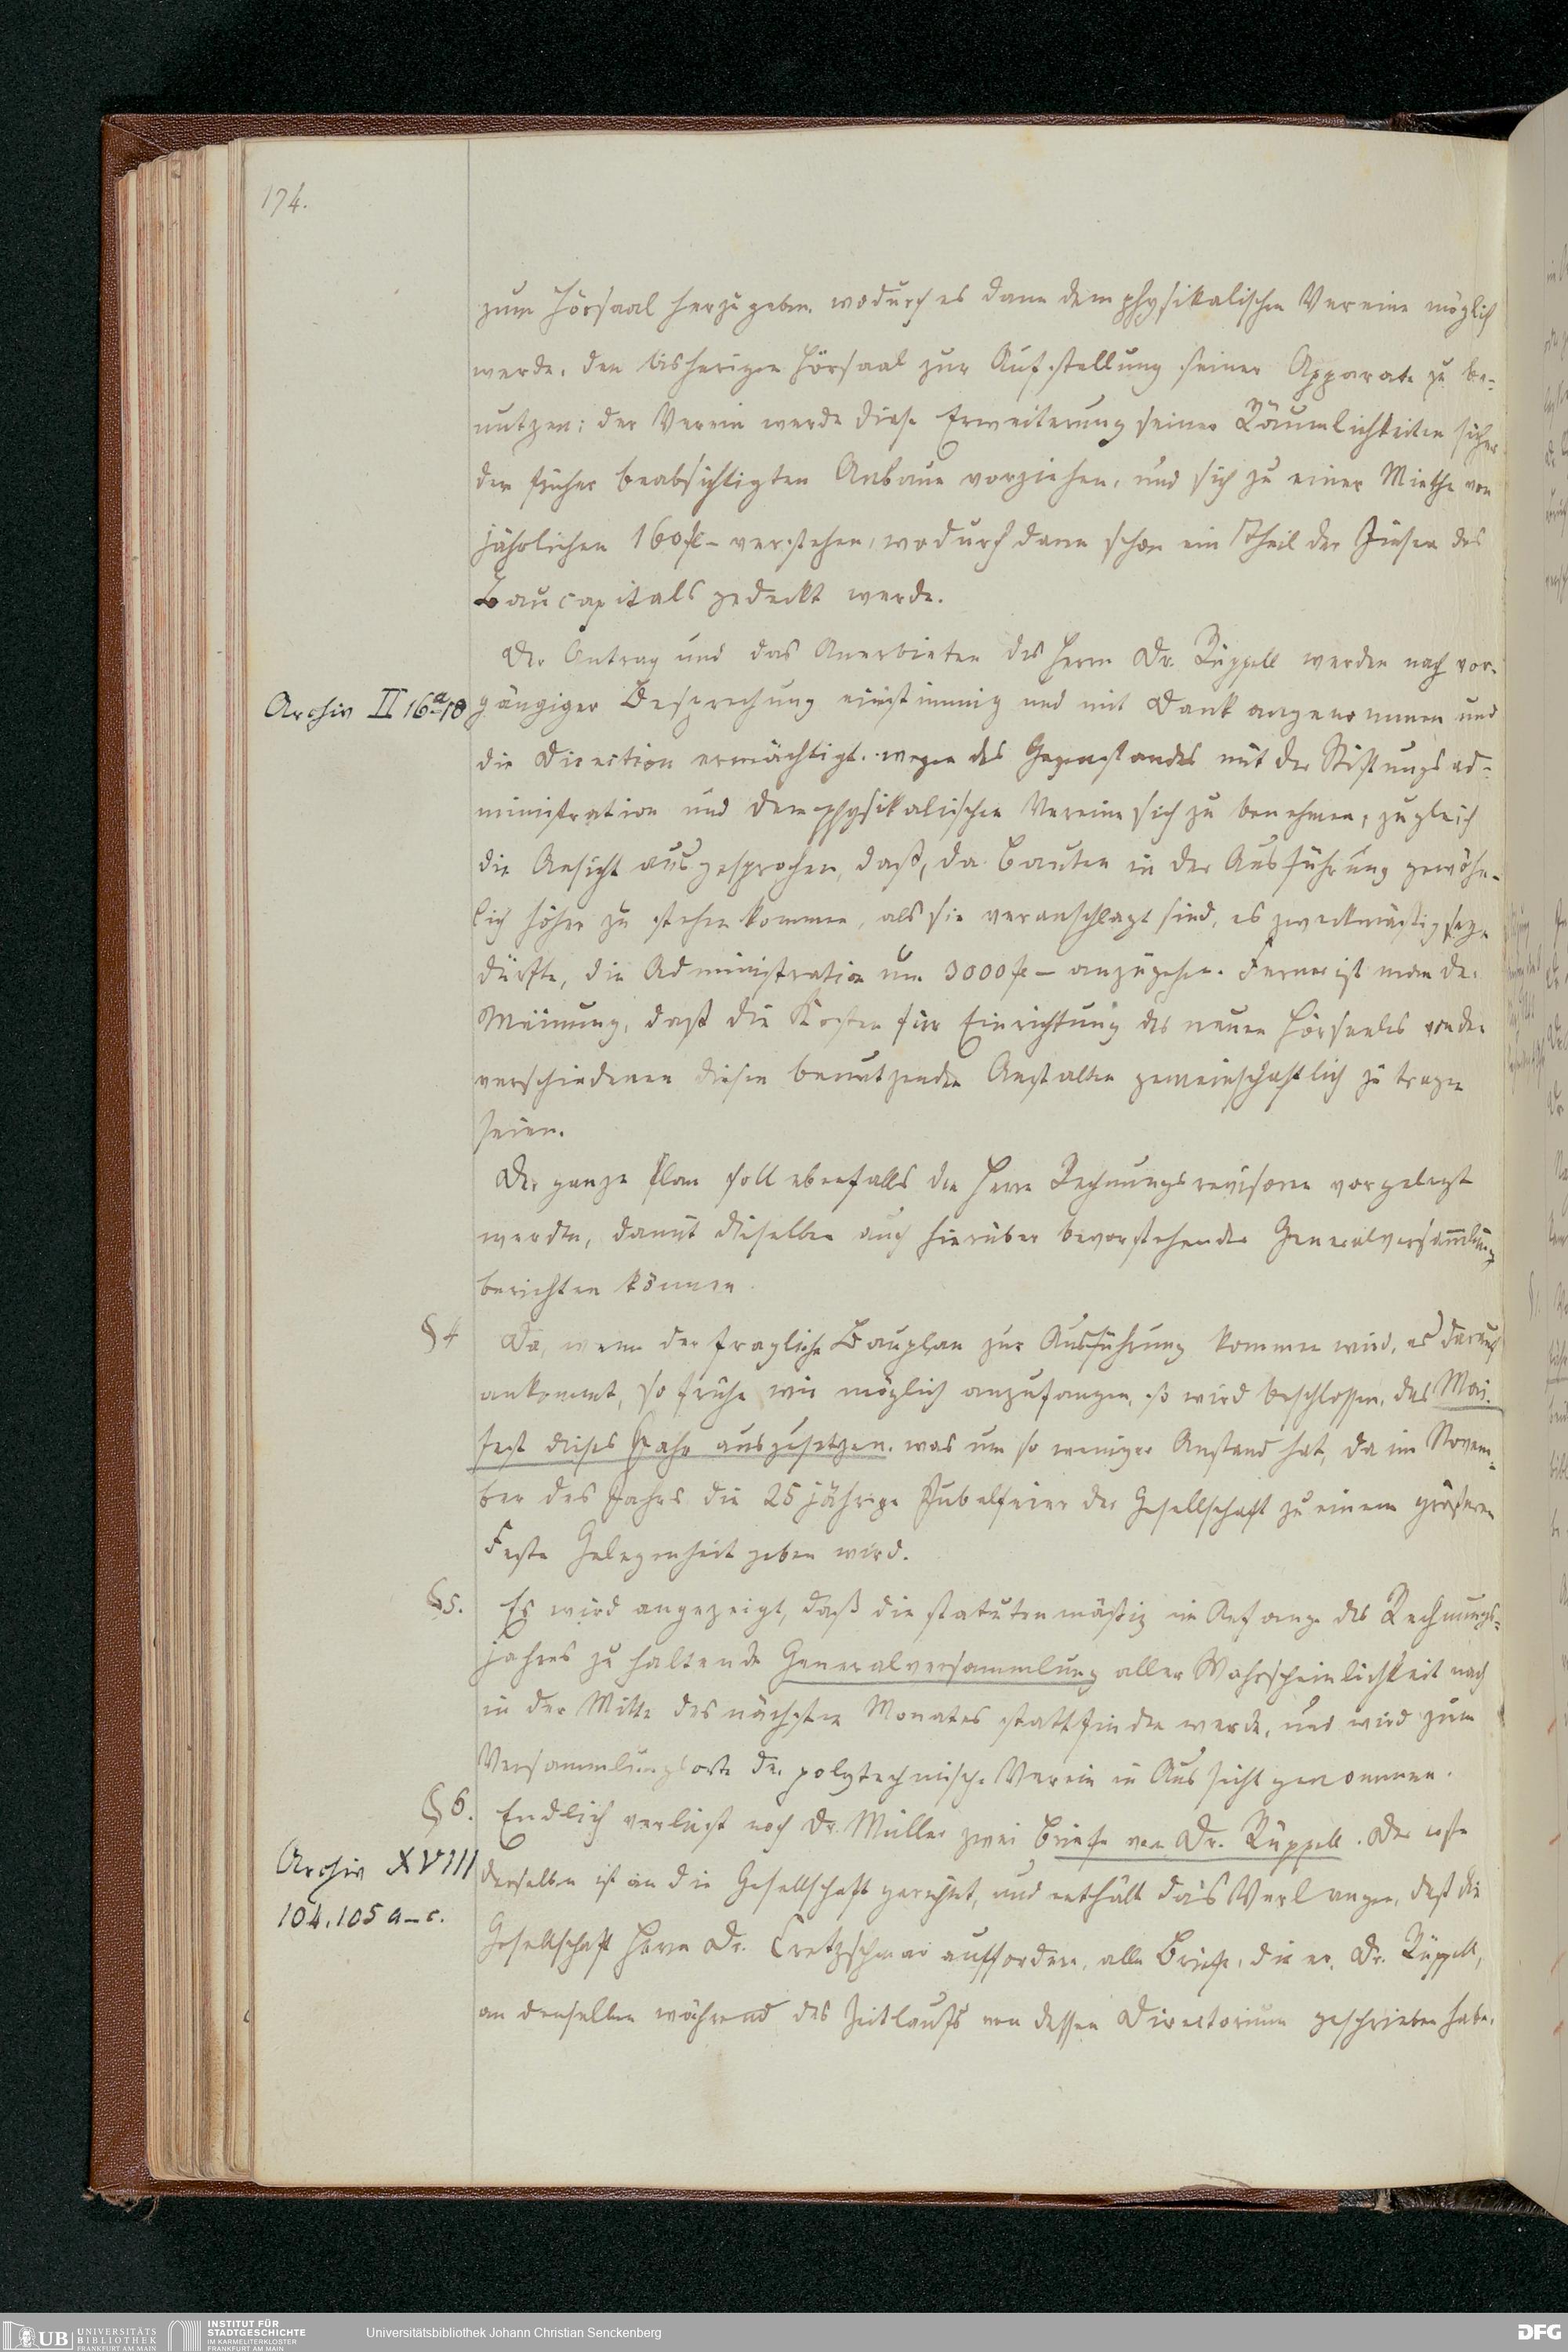 174.
zum Hörsaal herzugeben, wodurch es dann dem physikalischen Vereine möglich
werde, den bisherigen Hörsaal zur Aufstellung seiner Apparate zu be-
nutzen; der Verein werde diese Erweiterung seiner Räumlichkeiten sicher
den früher beabsichtigten Anbaue vorziehen, und sich zu einer Miethe von
jährlichen 160 fl – verstehen, wodurch dann schon ein Theil der Zinsen des
Baucapitals gedeckt werde.
Der Antrag und das Anerbieten des Herrn Dr. Rüppell werden nach vor-
Archiv II 16a-18
gängiger Besprechung einstimmig und mit Dank angenommen und
die Direction ermächtigt, wegen des Gegenstandes mit der Stiftungsad-
ministration und dem physikalischen Vereine sich zu benehmen, zugleich
die Ansicht ausgesprochen, daß, da Bauten in der Ausführung gewöhn-
lich höher zu stehen kommen, als sie veranschlagt sind, es zweckmäßig seyn
dürfte, die Administration um 3000 fl – anzugehen. Ferner ist man der
Meinung, daß die Kosten für Einrichtung des neuen Hörsaales von den
verschiedenen diesen benutzenden Anstalten gemeinschaftlich zu tragen
seien.
Der ganze Plan soll ebenfalls den Herrn Rechnungsrevisoren vorgelegt
werden, damit dieselben auch hierüber bevorstehender Generalversammlung
berichten können.
§ 4
Da, wenn der fragliche Bauplan zur Ausführung kommen wird, es darauf
ankommt, so frühe wie möglich anzufangen, so wird beschlossen, das Mai-
fest dieses Jahr auszusetzen, was um so weniger Anstand hat, da im Novem-
ber des Jahrs die 25 jährige Jubelfeier der Gesellschaft zu einem größeren
Feste Gelegenheit geben wird.
§ 5.
Es wird angezeigt, daß die statutenmäßig im Anfange des Rechnungs-
jahres zu haltende Generalversammlung aller Wahrscheinlichkeit nach
in der Mitte des nächsten Monates stattfinden werde, und wird zum
Versammlungsorte der polytechnische Verein in Aussicht genommen.
§ 6.
Endlich verliest noch Dr. Müller zwei Briefe von Dr. Rüppell. Der erste
Archiv XVIII
104. 105 a–c.
derselben ist an die Gesellschaft gerichtet, und enthält das Verlangen, daß die
Gesellschaft Herrn Dr. Cretzschmar auffordere, alle Briefe, die er, Dr. Rüppell,
an denselben während des Zeitlaufs von dessen Directorium geschrieben habe,
UB UNIVERSITÄTS
BIBLIOTHEK
FRANKFURT AM MAIN
INSTITUT FÜR
STADTGESCHICHTE
IM KARMELITERKLOSTER
FRANKFURT AM MAIN
Universitätsbibliothek Johann Christian Senckenberg
DFG